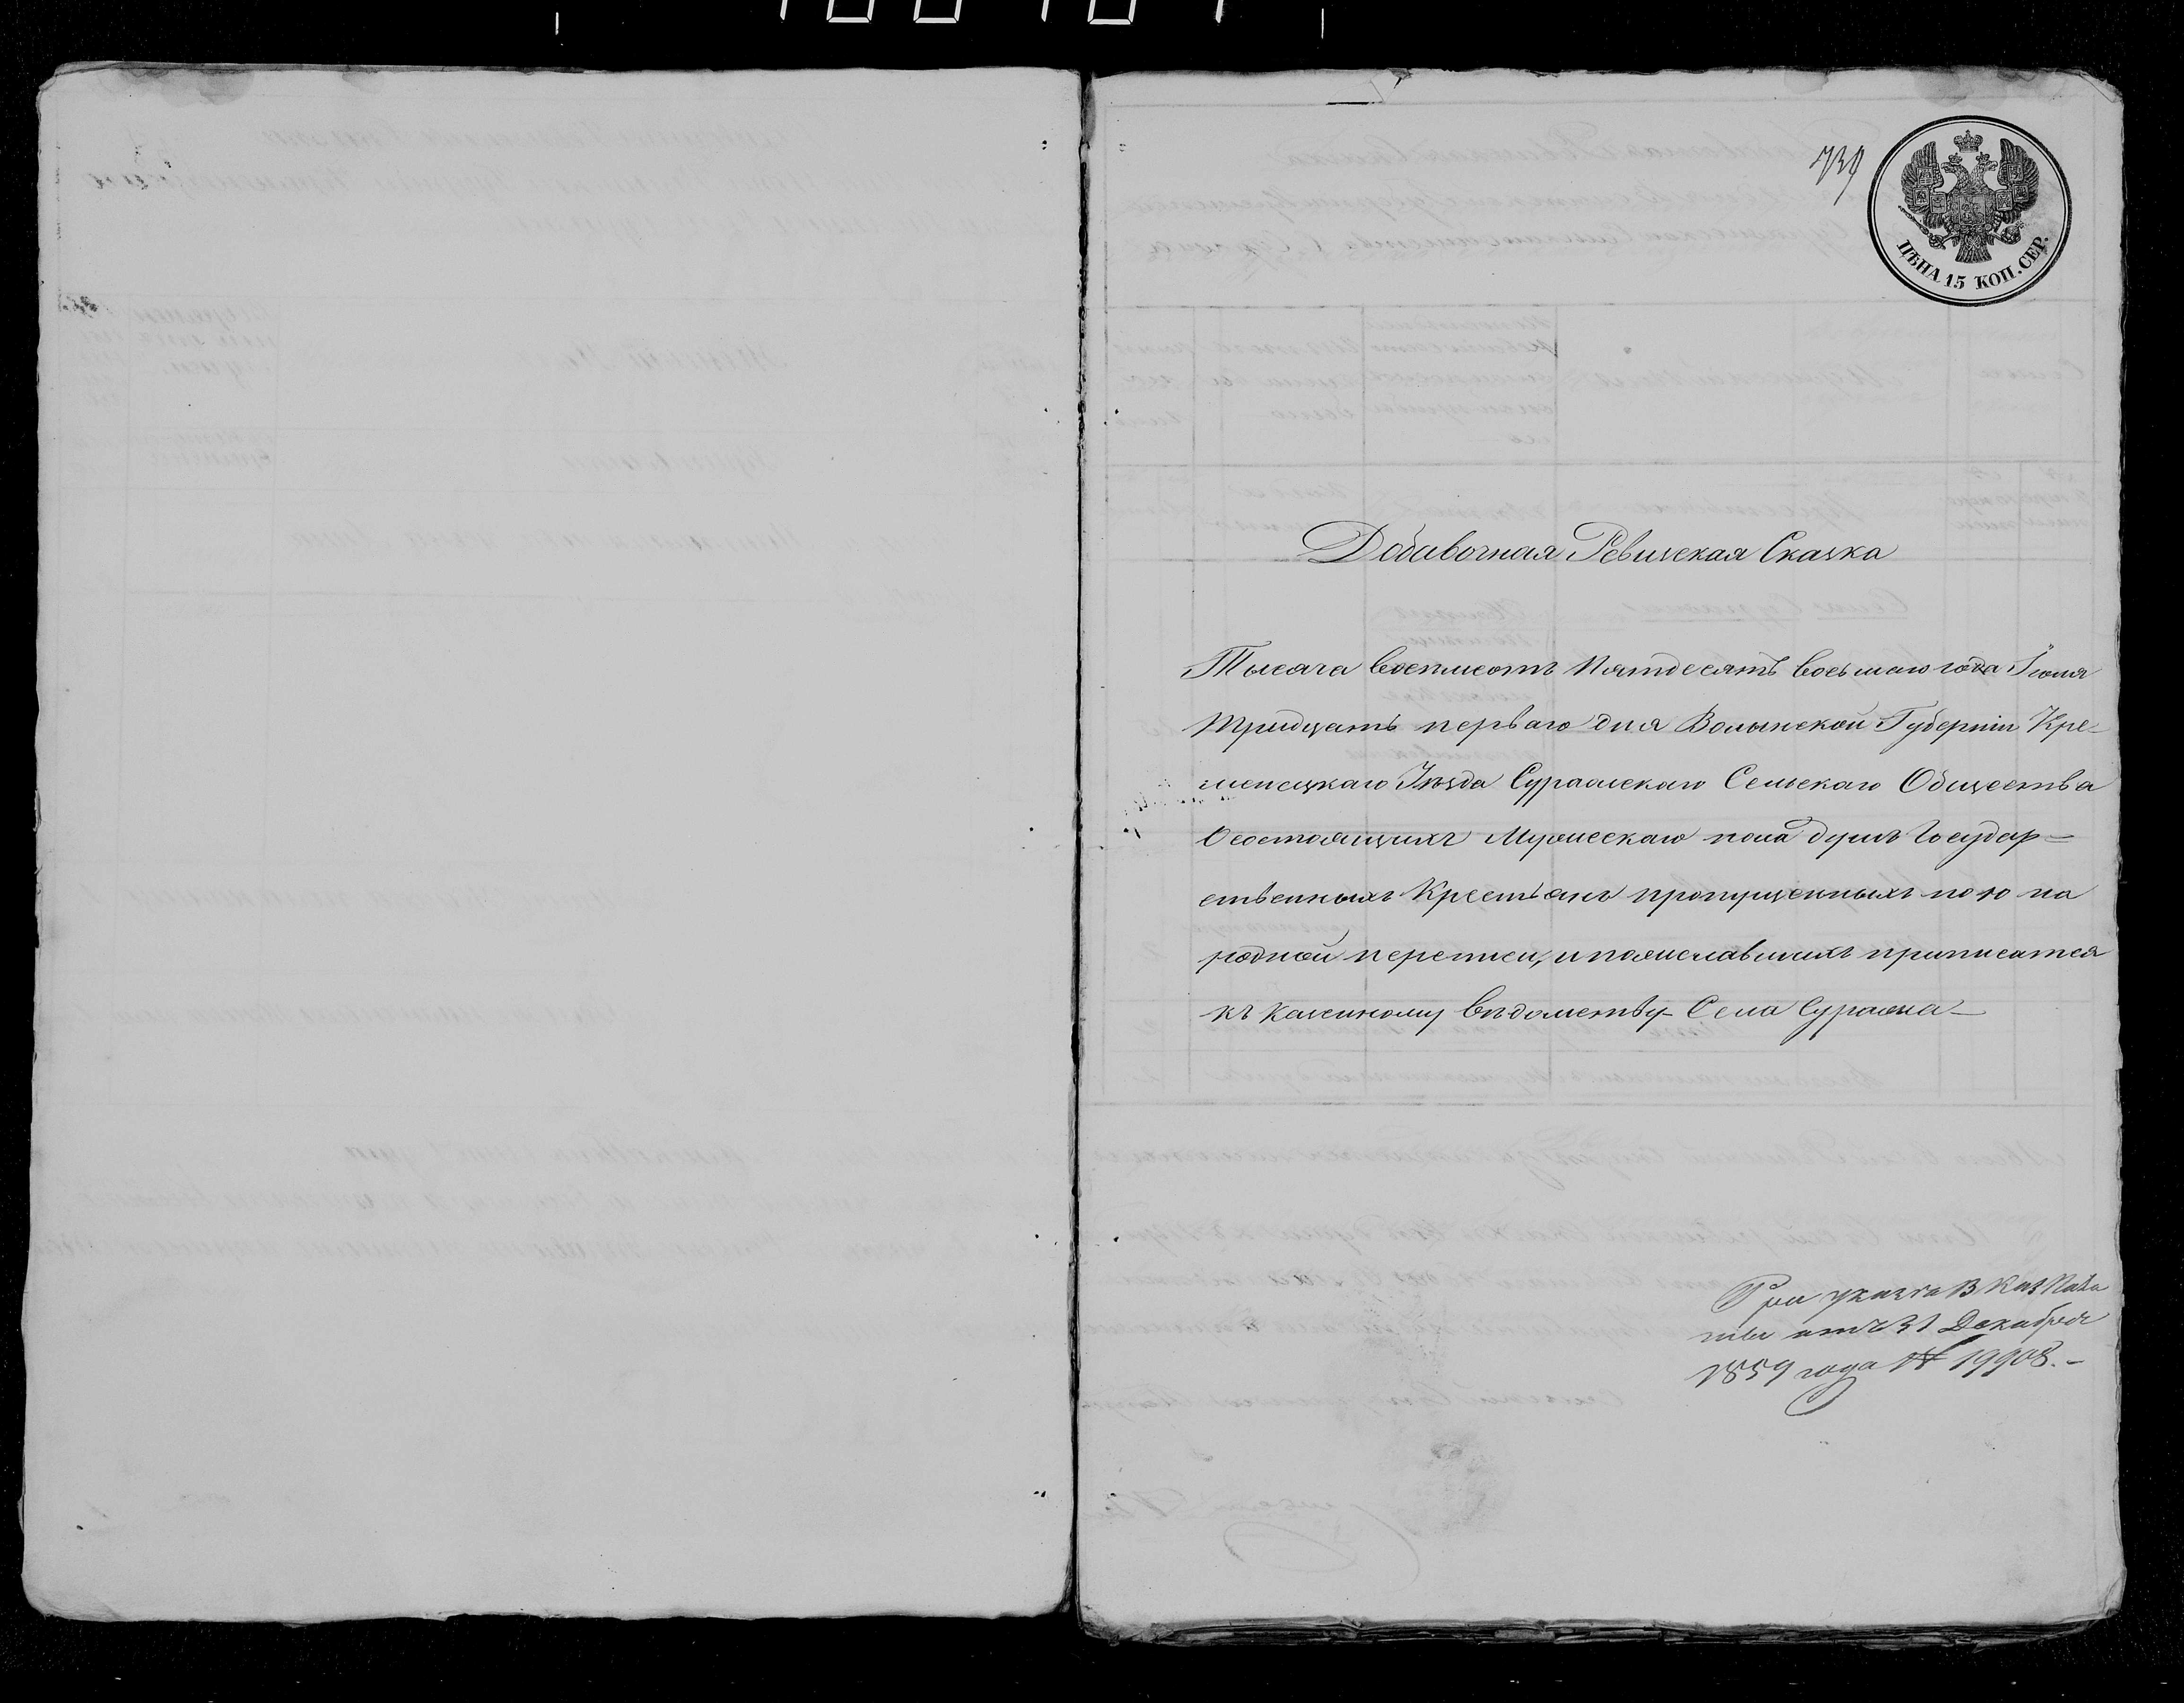 739
ЦѢНА 15 КОП. СЕР.
Добавочная Ревизская Сказка
Тысяча восемьсотъ пятдесятъ восьмаго года Іюля
тридцать перваго дня Волынской Губерніи Кре-
менецкаго Уѣзда Суражскаго Сельскаго Общества
О состоящихъ Мужескаго пола душъ Государ-
ственныхъ Крестьянъ пропущенныхъ по 10 на
родной переписи, и пожелавшихъ приписатся
къ казенному вѣдомству Села Суража
При указѣ В Каз Пала
ты отъ 31 Декабря
1859 года № 19908.